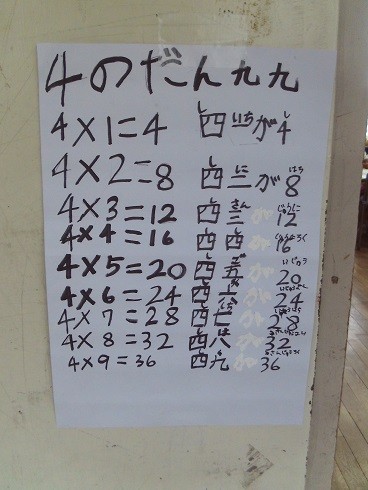 4のだん九九
4×1=4 四が4
4×2=8 四二が8
4×3=12 四三が12
4×4=16 四四が16
4×5=20 四五が20
4×6=24 四六が24
4×7=28 四七が28
4×8=32 四八が32
4×9=36 四九が36